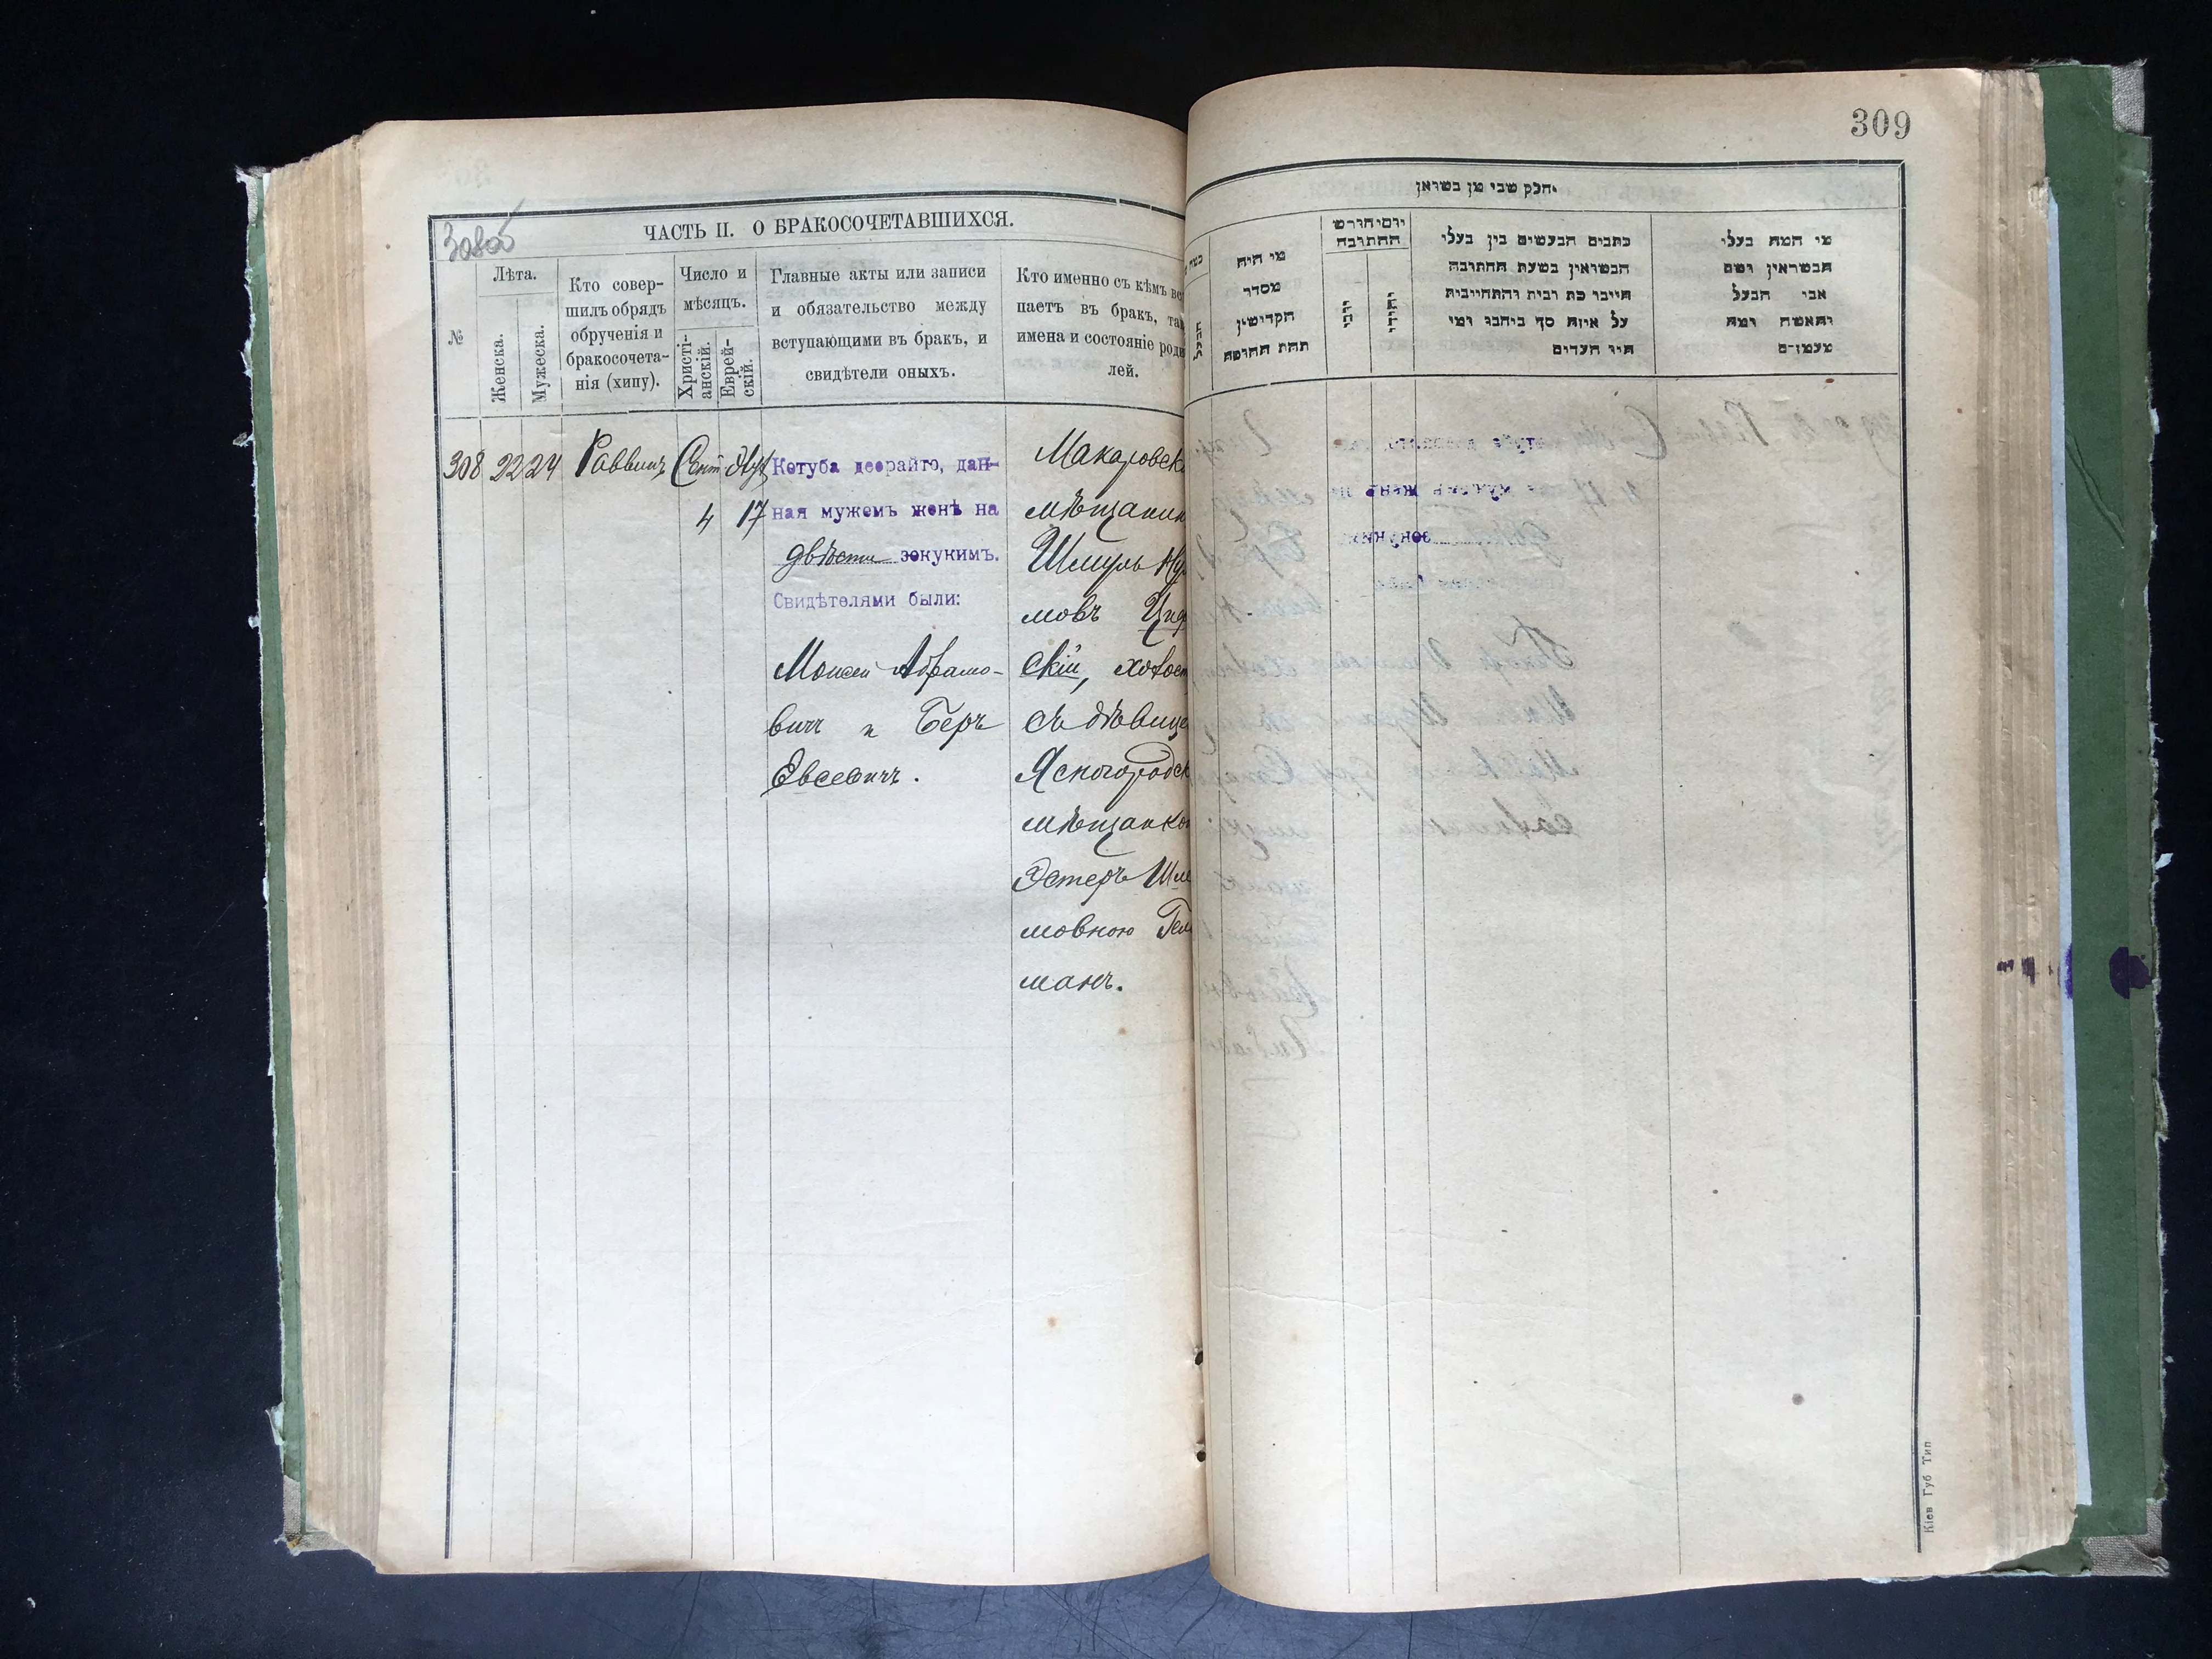 309
ЧАСТЬ II. О БРАКОСОЧЕТАВШИХСЯ.
№
Лѣта.
Женска.
Мужеска.
Кто совер-
шилъ обрядъ
обрученія и
бракосочета-
нія (хипу).
Число и
мѣсяцъ.
Христі-
анскій.
Еврей-
скій.
Главные акты или записи
и обязательство между
вступающими въ бракъ, и
свидѣтели оныхъ.
Кто именно съ кѣмъ вст
паетъ въ бракъ, так
имена и состояніе роди
лей.
308 22 24 Раввинъ Сент
4 17
Кетуба деорайто, дан-
ная мужемъ женѣ на
двѣсти зокукимъ.
Свидѣтелями были:
Моисей Абрамо-
вичъ и Беръ
Евсевичъ.
Макаровск
мѣщанин
Шмуль
мовъ
скій, холост
съ дѣвицей
Ясногородск
мѣщанкой
Эстеръ Шле
мовною Гел
манъ.
חלק שני מן בשואן
מי היה
מסדר
הקדושין
תחת החופה
הבעל
יום וחודש
החתובה
כתבים הנעשים בין בעלי
הנשואין בשעת החתובה
חייבו כת רבית והתחייבות
על איזה סך ביחבו ומי
היו העדים
מי המה בעלי
הנשואין ושם
אבי הבעל
והאשה ומה
מעמדם
Кіев Губ Тип